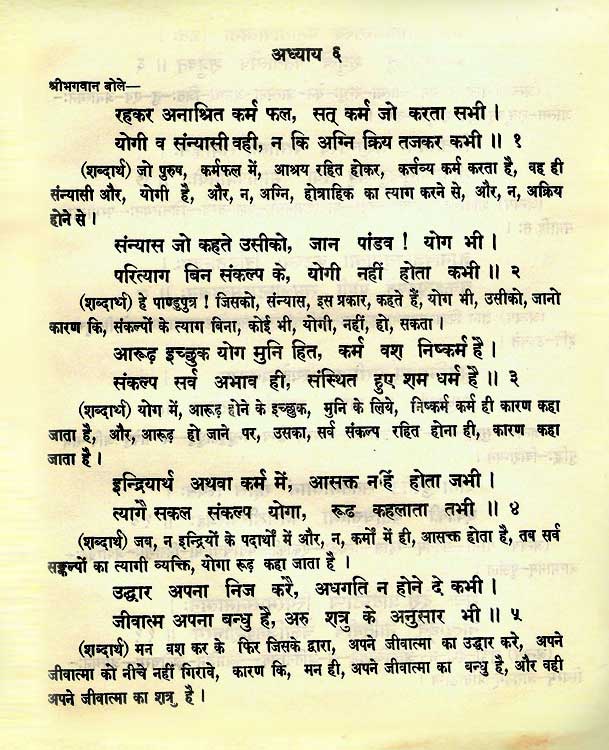 अध्याय ६
श्रीभगवान बोले—
रहकर अनाश्रित कर्म फल, सत् कर्म जो करता सभी ।
योगी व संन्यासी वही, न कि अग्नि क्रिय तजकर कभी ॥ १
(शब्दार्थ) जो पुरुष, कर्मफल में, आश्रय रहित होकर, कर्त्तव्य कर्म करता है, वह ही
संन्यासी और, योगी है, और, न, अग्नि, होत्राहिक का त्याग करने से, और, न, अक्रिय
होने से ।
संन्यास जो कहते उसीको, जान पांडव ! योग भी ।
परित्याग बिन संकल्प के, योगी नहीं होता कभी ॥ २
(शब्दार्थ) हे पाण्डुपुत्र ! जिसको, संन्यास, इस प्रकार, कहते हैं, योग भी, उसीको, जानो
कारण कि, संकल्पों के त्याग बिना, कोई भी, योगी, नहीं, हो, सकता ।
आरूढ़ इच्छुक योग मुनि हित, कर्म वश निष्कर्म है ।
संकल्प सर्व अभाव ही, संस्थित हुए शम धर्म है ॥ ३
(शब्दार्थ) योग में, आरूढ़ होने के इच्छुक, मुनि के लिये, निष्कर्म कर्म ही कारण कहा
जाता है, और, आरूढ़ हो जाने पर, उसका, सर्व संकल्प रहित होना ही, कारण कहा
जाता है ।
इन्द्रियार्थ अथवा कर्म में, आसक्त नहिं होता जभी ।
त्यागै सकल संकल्प योगा, रूढ कहलाता तभी ॥ ४
(शब्दार्थ) जब, न इन्द्रियों के पदार्थों में और, न, कर्मों में ही, आसक्त होता है, तब सर्व
सङ्कल्पों का त्यागी व्यक्ति, योगा रूढ़ कहा जाता है ।
उद्धार अपना निज करै, अधगति न होने दे कभी ।
जीवात्म अपना बन्धु है, अरु शत्रु के अनुसार भी ॥ ५
(शब्दार्थ) मन वश कर के फिर जिसके द्वारा, अपने जीवात्मा का उद्धार करे, अपने
जीवात्मा को नीचे नहीं गिरावे, कारण कि, मन ही, अपने जीवात्मा का बन्धु है, और वही
अपने जीवात्मा का शत्रु है ।